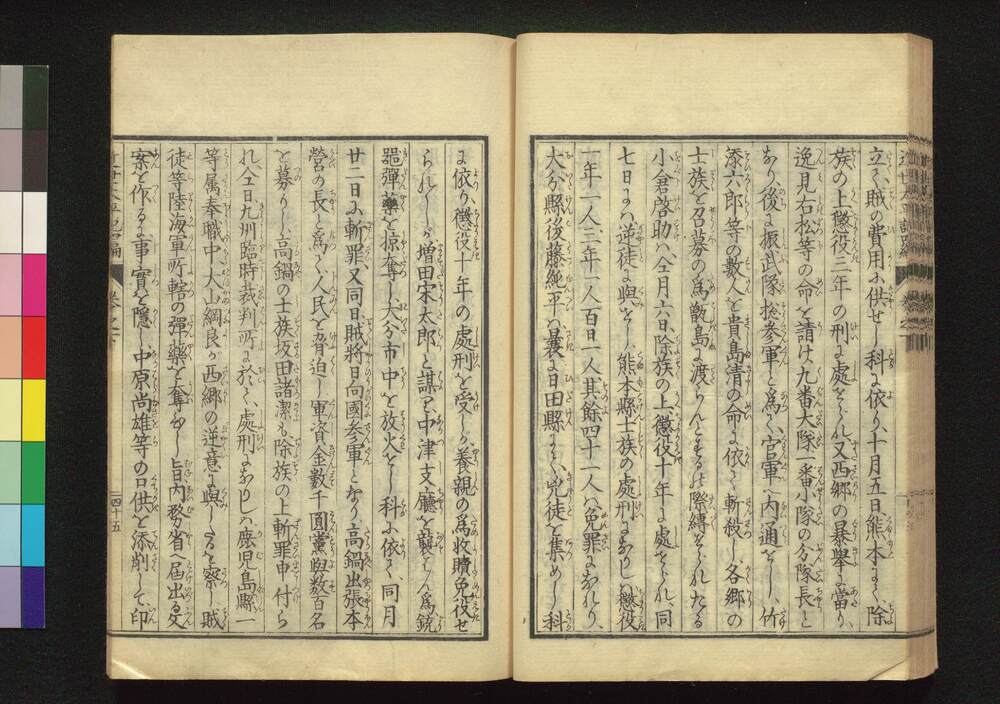 立て、賊の費用に供せし科に依り、十月五日、熊本にて、除
族の上懲役三年の刑に處せられ又西郷の暴擧に當り、
逸見右松等の命を請け九番大隊一番小隊の分隊長と
なり後に振武隊総参軍と為て、官軍へ内通せし、竹
添六郎等の數人を貴島清の命に依て斬殺し各郷の
士族を召募の為甑島に渡らんとするの際縛せられたる
小倉啓助ハ、仝月六日、除族の上懲役十年に處せられ、同
七日にハ逆徒に與せし、熊本縣士族の処刑になりしハ懲役
一年一人三年一人百日一人其餘四十一人ハ免罪になれり、
大分縣後藤純平ハ曩に日田縣にて、兇徒を集めし科
に依り懲役十年の處刑を受しが養親の為收贖免役せ
られしが増田宋太郎と謀て中津支廳を襲ひ人為銃
器彈藥を掠奪し大分市中を放火せし科に依り同月
廿二日に斬罪、又同日賊將日向國参軍となり高鍋出張本
營の長と為て人民を脅迫し軍資金數千圓黨與數百名
を募りし高鍋の士族坂田諸潔も除族の上斬罪申付ら
れ、仝日九州臨時裁判所に於て、處刑になりしハ鹿児島縣一
等属奉職中、大山綱良が西郷の逆意に與したるを察し賊
徒等陸海軍所轄の彈藥を奪ひし旨内務省へ屆出る文
案を作るに事實を隱し、中原尚雄等の口供を添削して、印
四十五